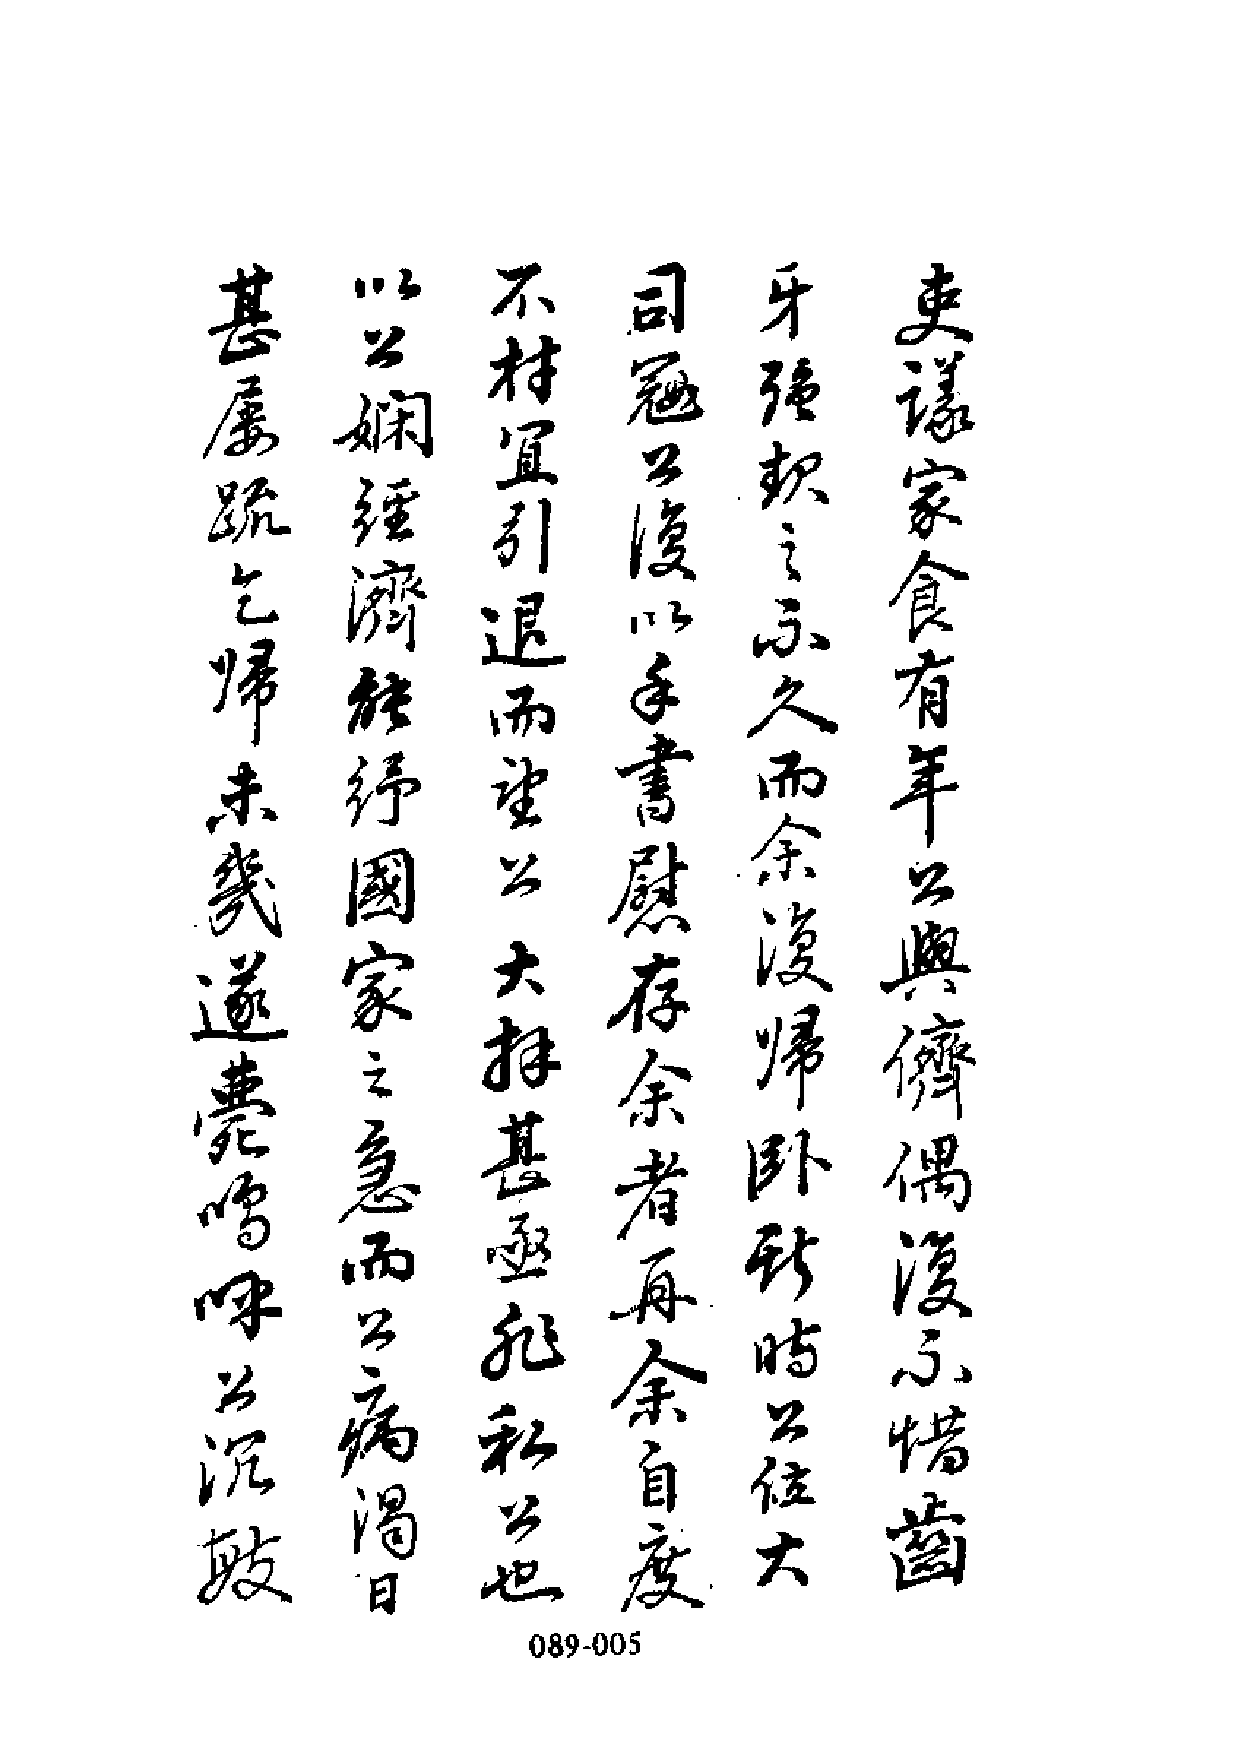 吏議家食有年公與儕偶復不惜齒
牙強契之不久而余復歸卧新時公位大
司寇公復以手書慰存余者再余自度
不材宜引退而望公大拜甚亟非私公也
以公嫻經濟能紓國家之急而公病渴日
甚屢疏乞歸未幾遂薨嗚呼公沉毅
089-005